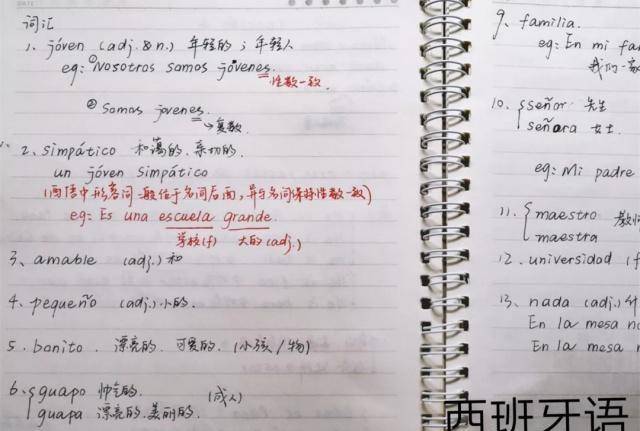 词汇
1、jóven (adj.&n.) 年轻的；年轻人
eg: ①Nosotros somos jóvenes.
性数一致.
② Somos jovenes.
→复数
2、simpático 和蔼的、亲切的.
un jóven simpático
(西语中形容词一般位于名词后面,并与名词保持性数一致)
eg: Es una escuela grande.
学校(f) 大的(adj.)
3、amable (adj.) 和
4、pequeño (adj.)小的.
5、bonito. 漂亮的. 可爱的. (小孩/物)
6、guapo 帅气的.
guapa 漂亮的.美丽的.
(成人)
9、familia.
eg: En mi fa
我们家
10、señor 先生
señara 女士
eg: Mi padre
11、maestro 教师
maestra
12、universidad (f
13、nada (adj.)
En la mesa n
En la mesa
西班牙语